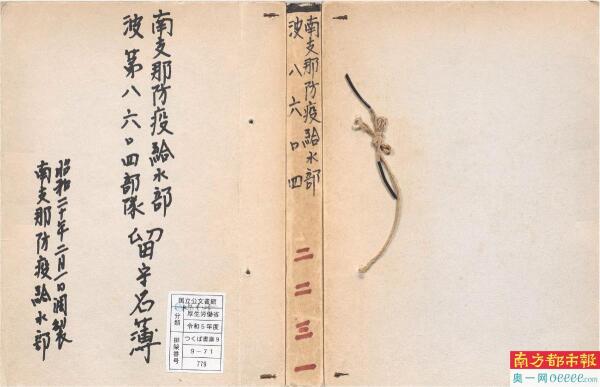 南支那防疫給水部
波第八六〇四部隊 留守名簿
昭和二十年二月一日調製
南支那防疫給水部
国立公文書館
分類
厚生労働省
令和5年度
つくば書庫9
排架番号
9-71
779
南支那防疫給水部
波八六〇四
二二三一
南方都市报
奥一网oeeee.com